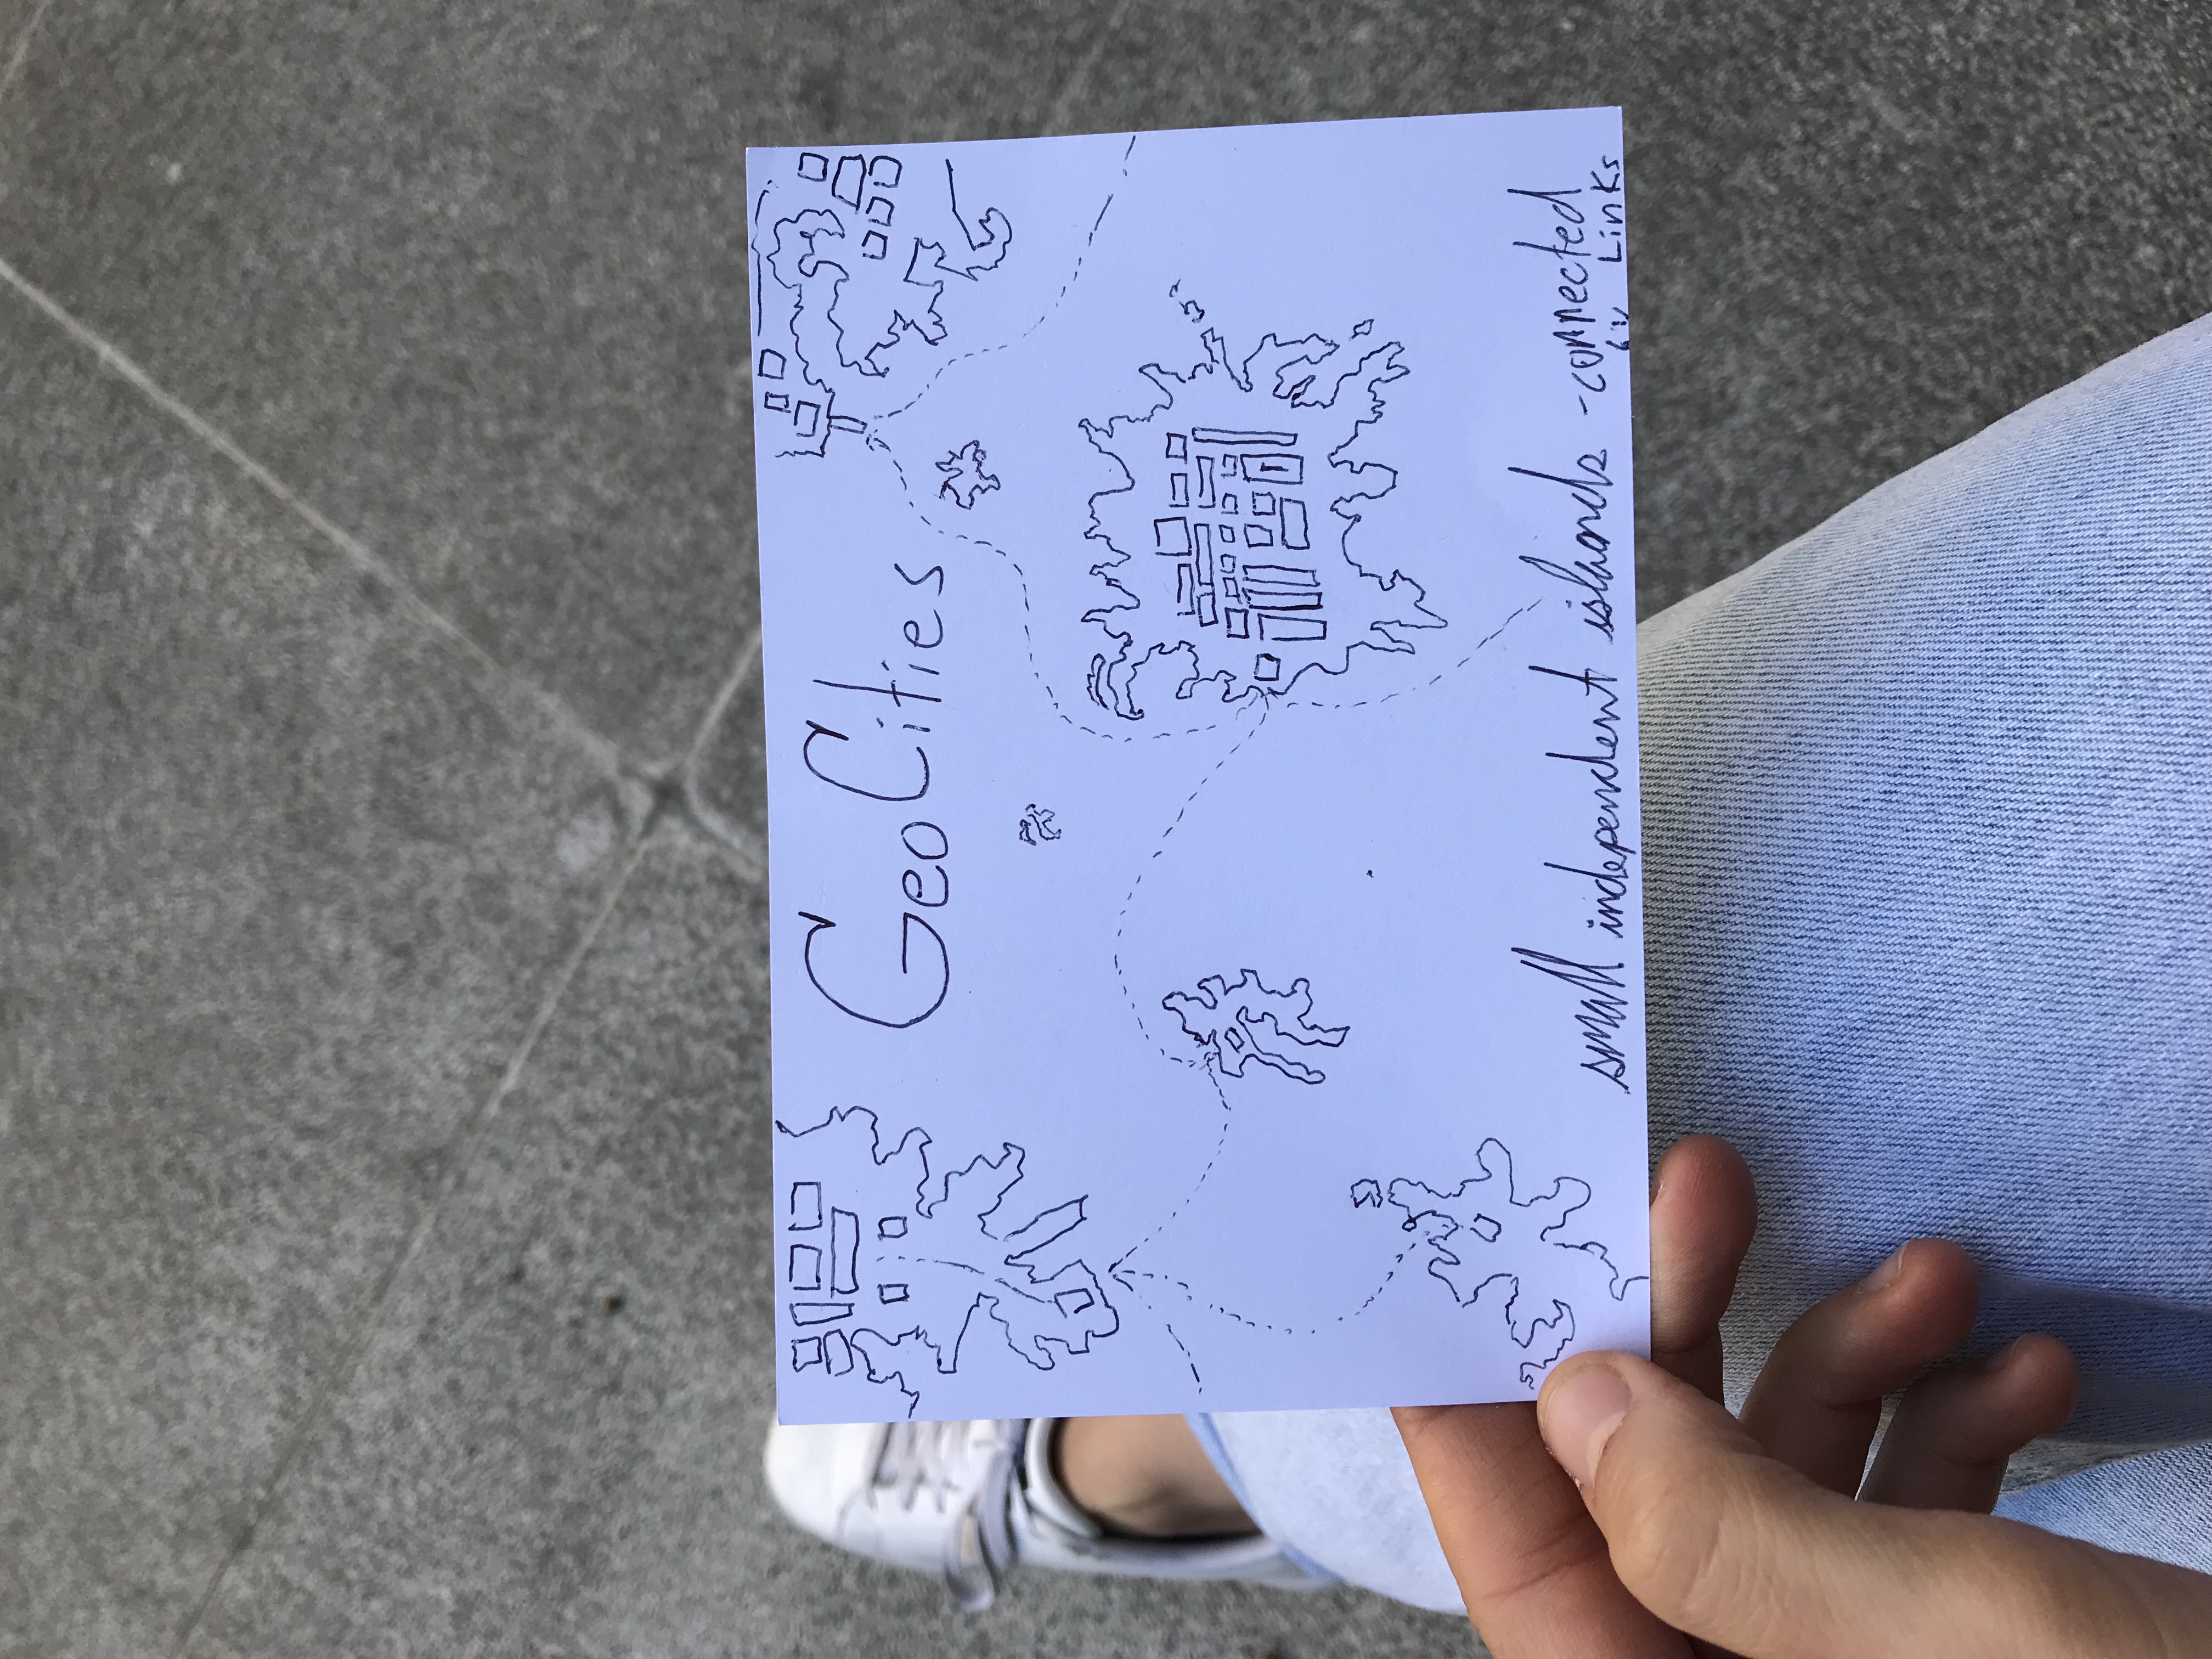 GeoCities
small independent islands - connected
by Links